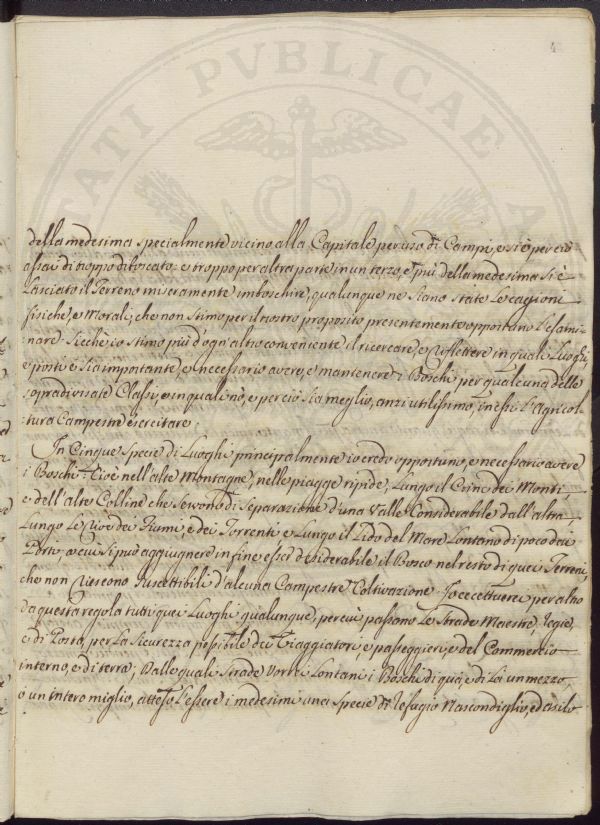 4
TATI PVBLICAE
della medesima specialmente vicino alla Capitale per uso di Campi, e si è perciò
assai di troppo diboscato: e troppo per altra parte in un terzo, e più della medesima si è
lasciato il Terreno miseramente imboschire, qualunque ne siano state le cagioni
fisiche, e Morali, che non stimo per il nostro proposito presentemente opportuno l'esami-
nare. Sicchè io stimo più d'ogn'altro conveniente il ricercare, e riflettere in quali Luoghi,
e posti e sia importante, e necessario avere, e mantenere i Boschi per qualcuna delle
sopradivisate Classi, e in quali nò, e perciò sia meglio, anzi utilissimo, in essi l'Agricol-
tura Campestre esercitare.
In Cinque specie di Luoghi principalmente io credo opportuno, e necessario avere
i Boschi: Cioè nell'alte Montagne, nelle piagge ripide, Lungo il Crine dei Monti,
e dell'alte Colline che servono di separazione d'una Valle Considerabile dall'altra,
Lungo Le rive dei Fiumi, e dei Torrenti, e Lungo il Lido del Mare Lontano di poco dai
Porti, a cui si può aggiugnere in fine esser desiderabile il Bosco nel resto di quei Terreni,
che non riescono suscettibili d'alcuna Campestre Coltivazione. Io eccettuerei per altro
da questa regola tutti quei Luoghi qualunque, per cui passano Le Strade Maestre, regie,
e di Posta, per La sicurezza possibile dei Viaggiatori, e passeggieri, e del Commercio
interno, e di terra; Dalle quali strade vorrei Lontani i Boschi di qua, e di Là un mezzo,
o un intero miglio, atteso l'essere i medesimi una specie di refugio Nascondiglio, ed asilo